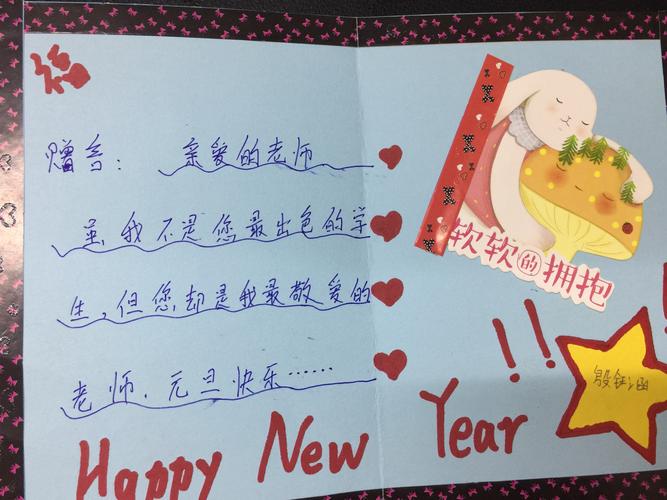 福
赠言: 亲爱的老师
虽我不是您最出色的学
生,但您却是我最敬爱的
老师,元旦快乐……
软软的拥抱
Happy New Year !!